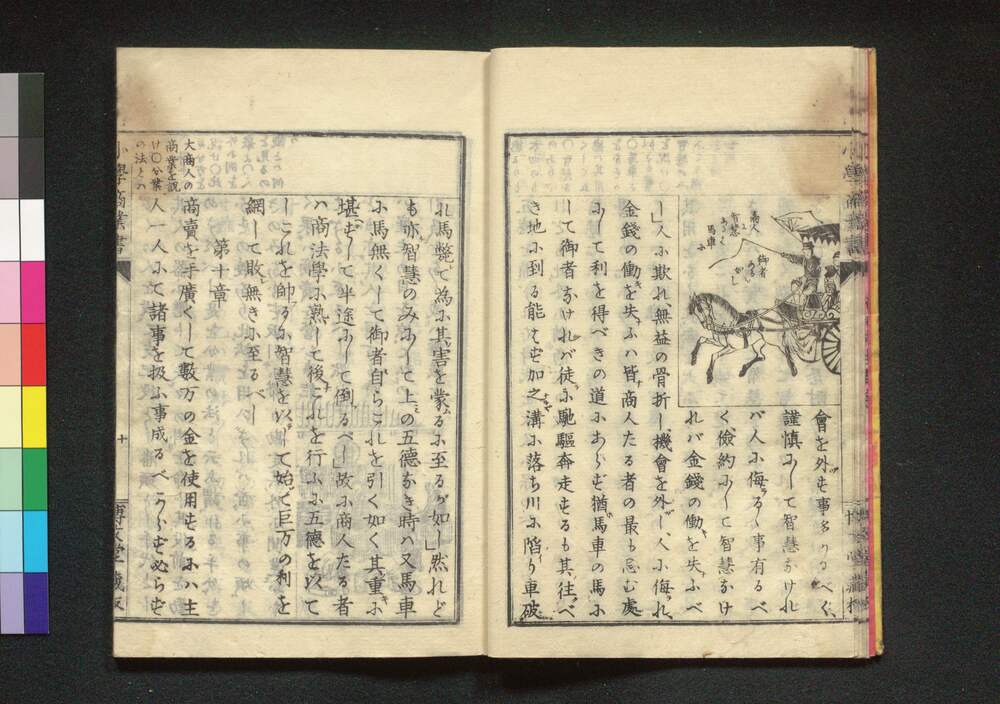 會を外ず事多かるべく、
謹慎にして智慧なけれ
バ人に侮らるゝ事有るべ
く、儉約にして智慧なけ
れバ金錢の働を失ふべ
し」人に欺れ、無益の骨折し、機會を外し、人に侮れ、
金錢の働を失ふハ皆商人たる者の最も忌む處
にして利を得べきの道にあらず猶馬車の馬に
して御者なけれバ徒に馳驅奔走するも其往べ
き地に到る能はず加之溝に落ち川に陷り車破
れ馬斃て為に其害を蒙るに至るが如し」然れど
も亦智慧のみにして上の五德なき時ハ又馬車
に馬無くして御者自らこれを引く如く其重に
堪ずして半途にして倒るべし」故に商人たる者
ハ商法學に熟して後これを行ふに五德を以て
しこれを帥るに智慧を以して始て巨万の利を
網して敗無きに至るべし
第十章
商賣を手廣くして數万の金を使用するにハ主
人一人にて諸事を扱ふ事成るべからずならず
大商人の
商業を説
け〇分業
の法とハ
商人
智慧
なく
馬車に
御者
なきが
ごとし
小學商業書
十